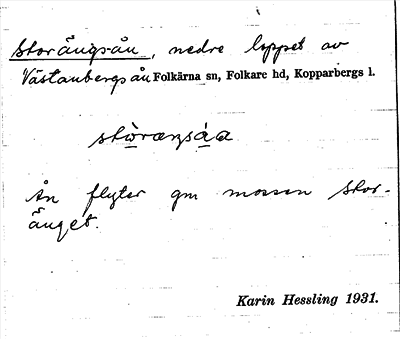 Storängs-ån, nedre loppet av
Västanbergsån Folkärna sn, Folkare hd, Kopparbergs l.
stòræŋsáa
Ån flyter gm mossen Stor-
änget.
Karin Hessling 1931.